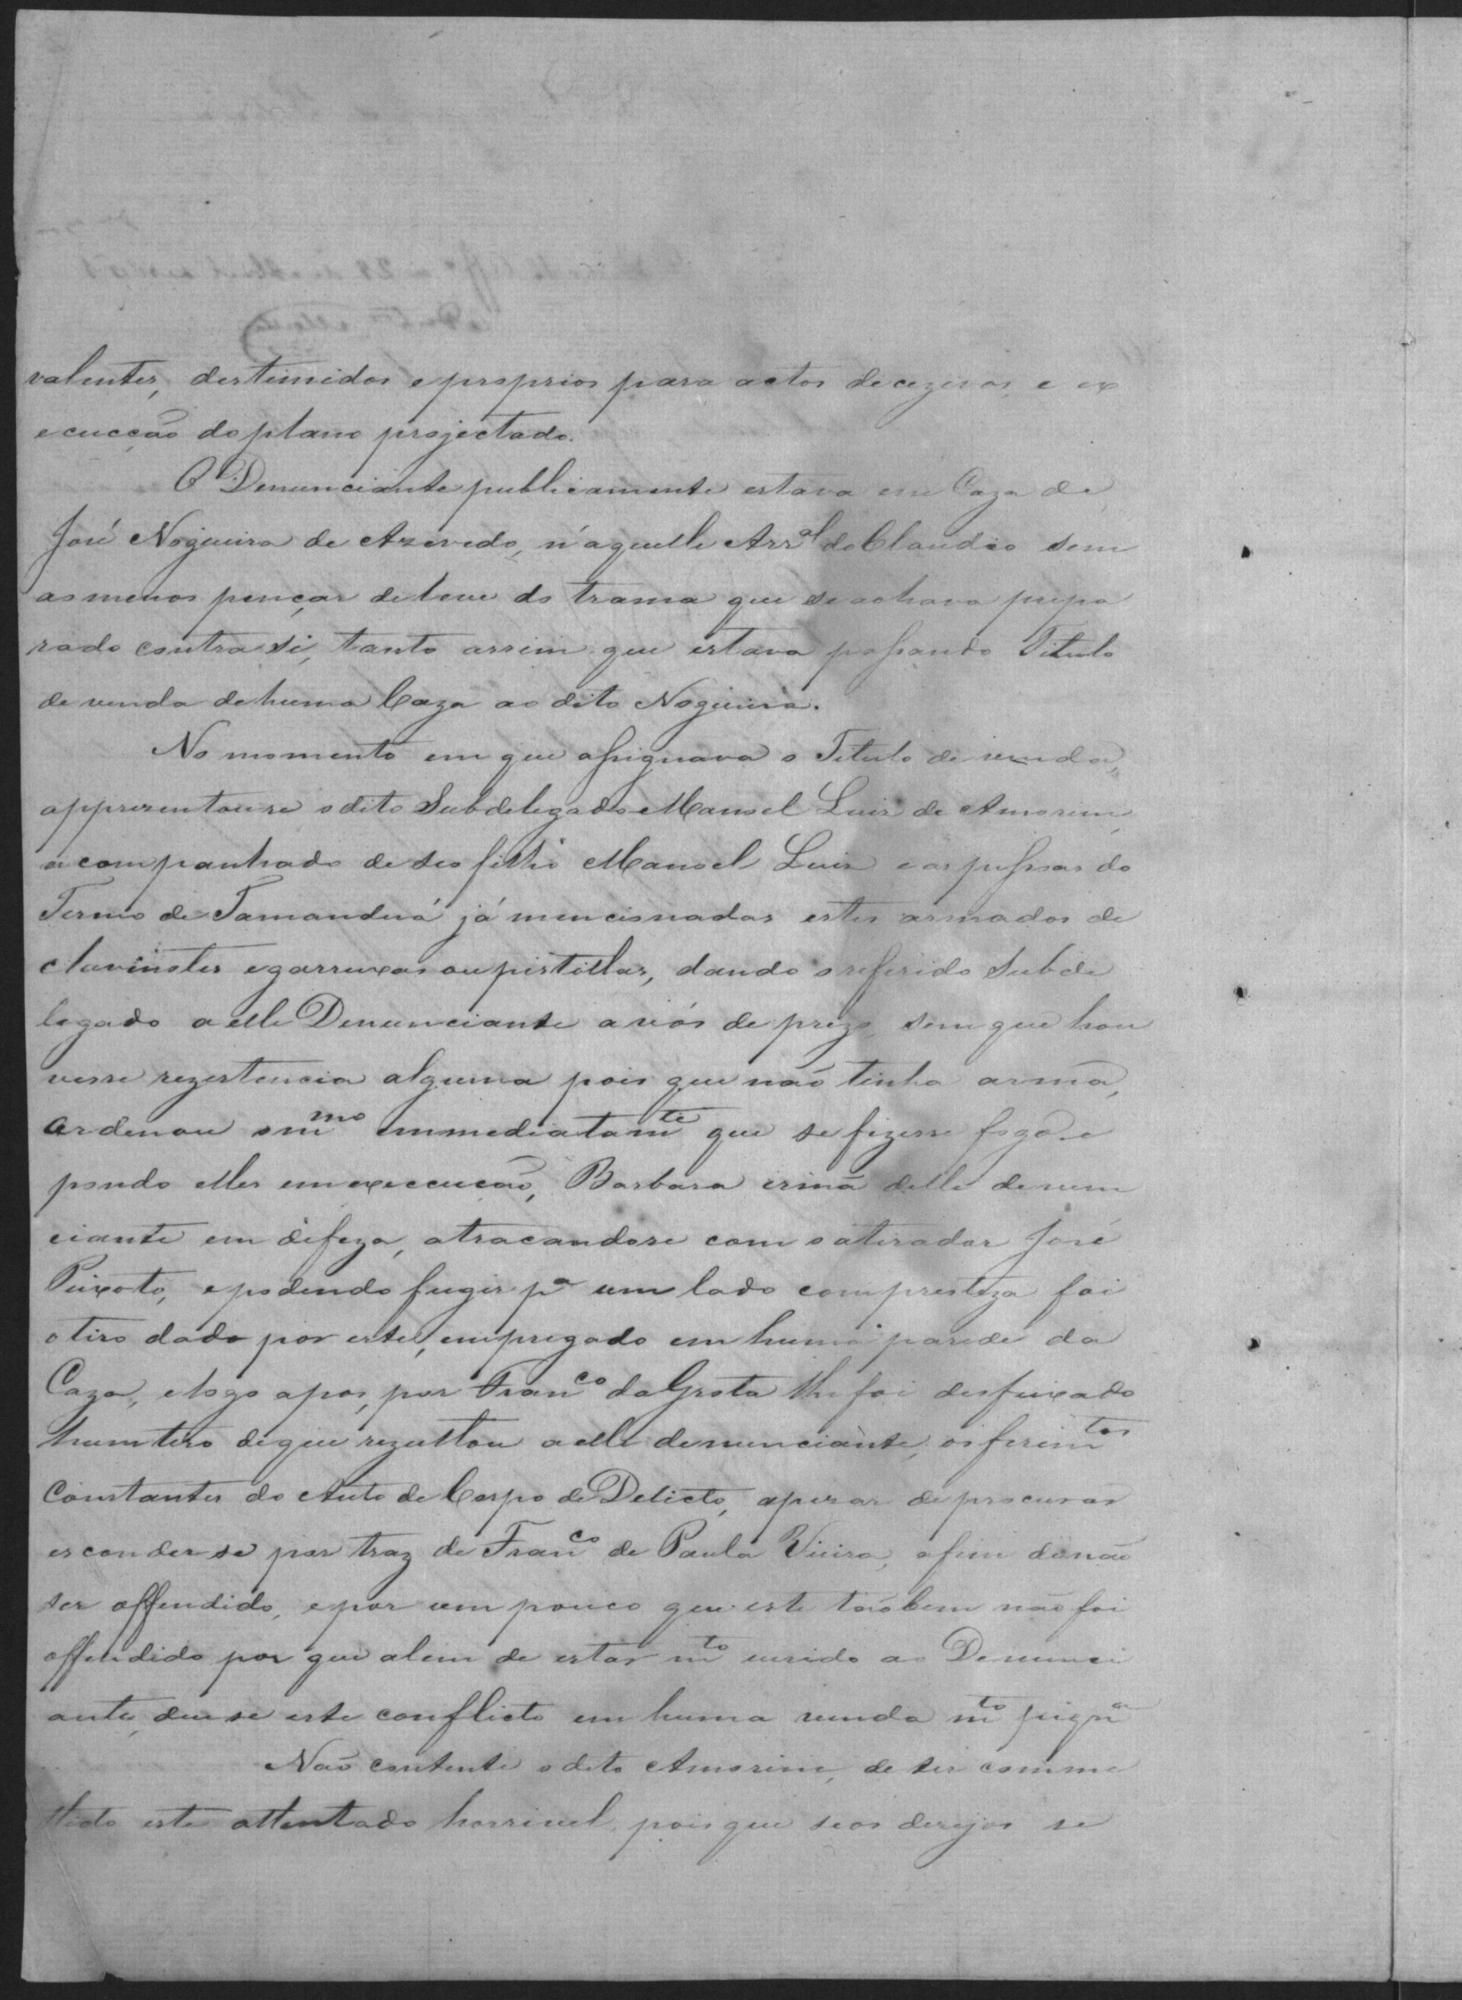 valentes, destimidos e proprios para actos decezivos, e ex
ecucção do plano projectado.
O Denunciante publicamente estava em Caza de
José Nogueira de Azevedo, n'aquelle Arr.al do Claudio sem
ao menos pençar de leve do trama que se achava prepa
rado contra si, tanto assim que estava passando Titulo
de venda de huma Caza ao dito Nogueira.
No momento em que assignava o Titulo de venda,
appresentouse o dito Subdelegado Manoel Luis de Amorim,
acompanhado de seo filho Manoel Luis e as pessoas do
Termo de Tamanduá já mencionadas estes armados de
clavinotes e garruxas ou pistollas, dando o referido Subde
legado a elle Denunciante a vós de prezo, sem que hou
vesse rezestencia alguma pois que não tinha arma,
Ordenou o m.mo immediatam.te que se fizesse fogo e
pondo elles em execcução, Barbara irmã delle denun
ciante em difeza, atracandose com o atirador José
Peixoto, e podendo fugir p.a um lado com presteza foi
o tiro dado por este, empregado em huma parede da
Caza, e logo apos, por Fran.co da Grota lhe foi desfeixado
hum tiro de que rezultou a elle denunciante, os ferim.tos
Constantes do Auto de Corpo de Delicto, apezar de procurar
esconder se por traz de Fran.co de Paula Vieira, afim de não
ser offendido, e por um pouco que este tãobem não foi
offendido por que alem de estar m.to unido ao Denunci
ante, deu se este conflicto em huma venda m.to piqn.a
Não contente o dito Amorim, de ter comme
ttido este attentado horrivel, pois que seos desejos se